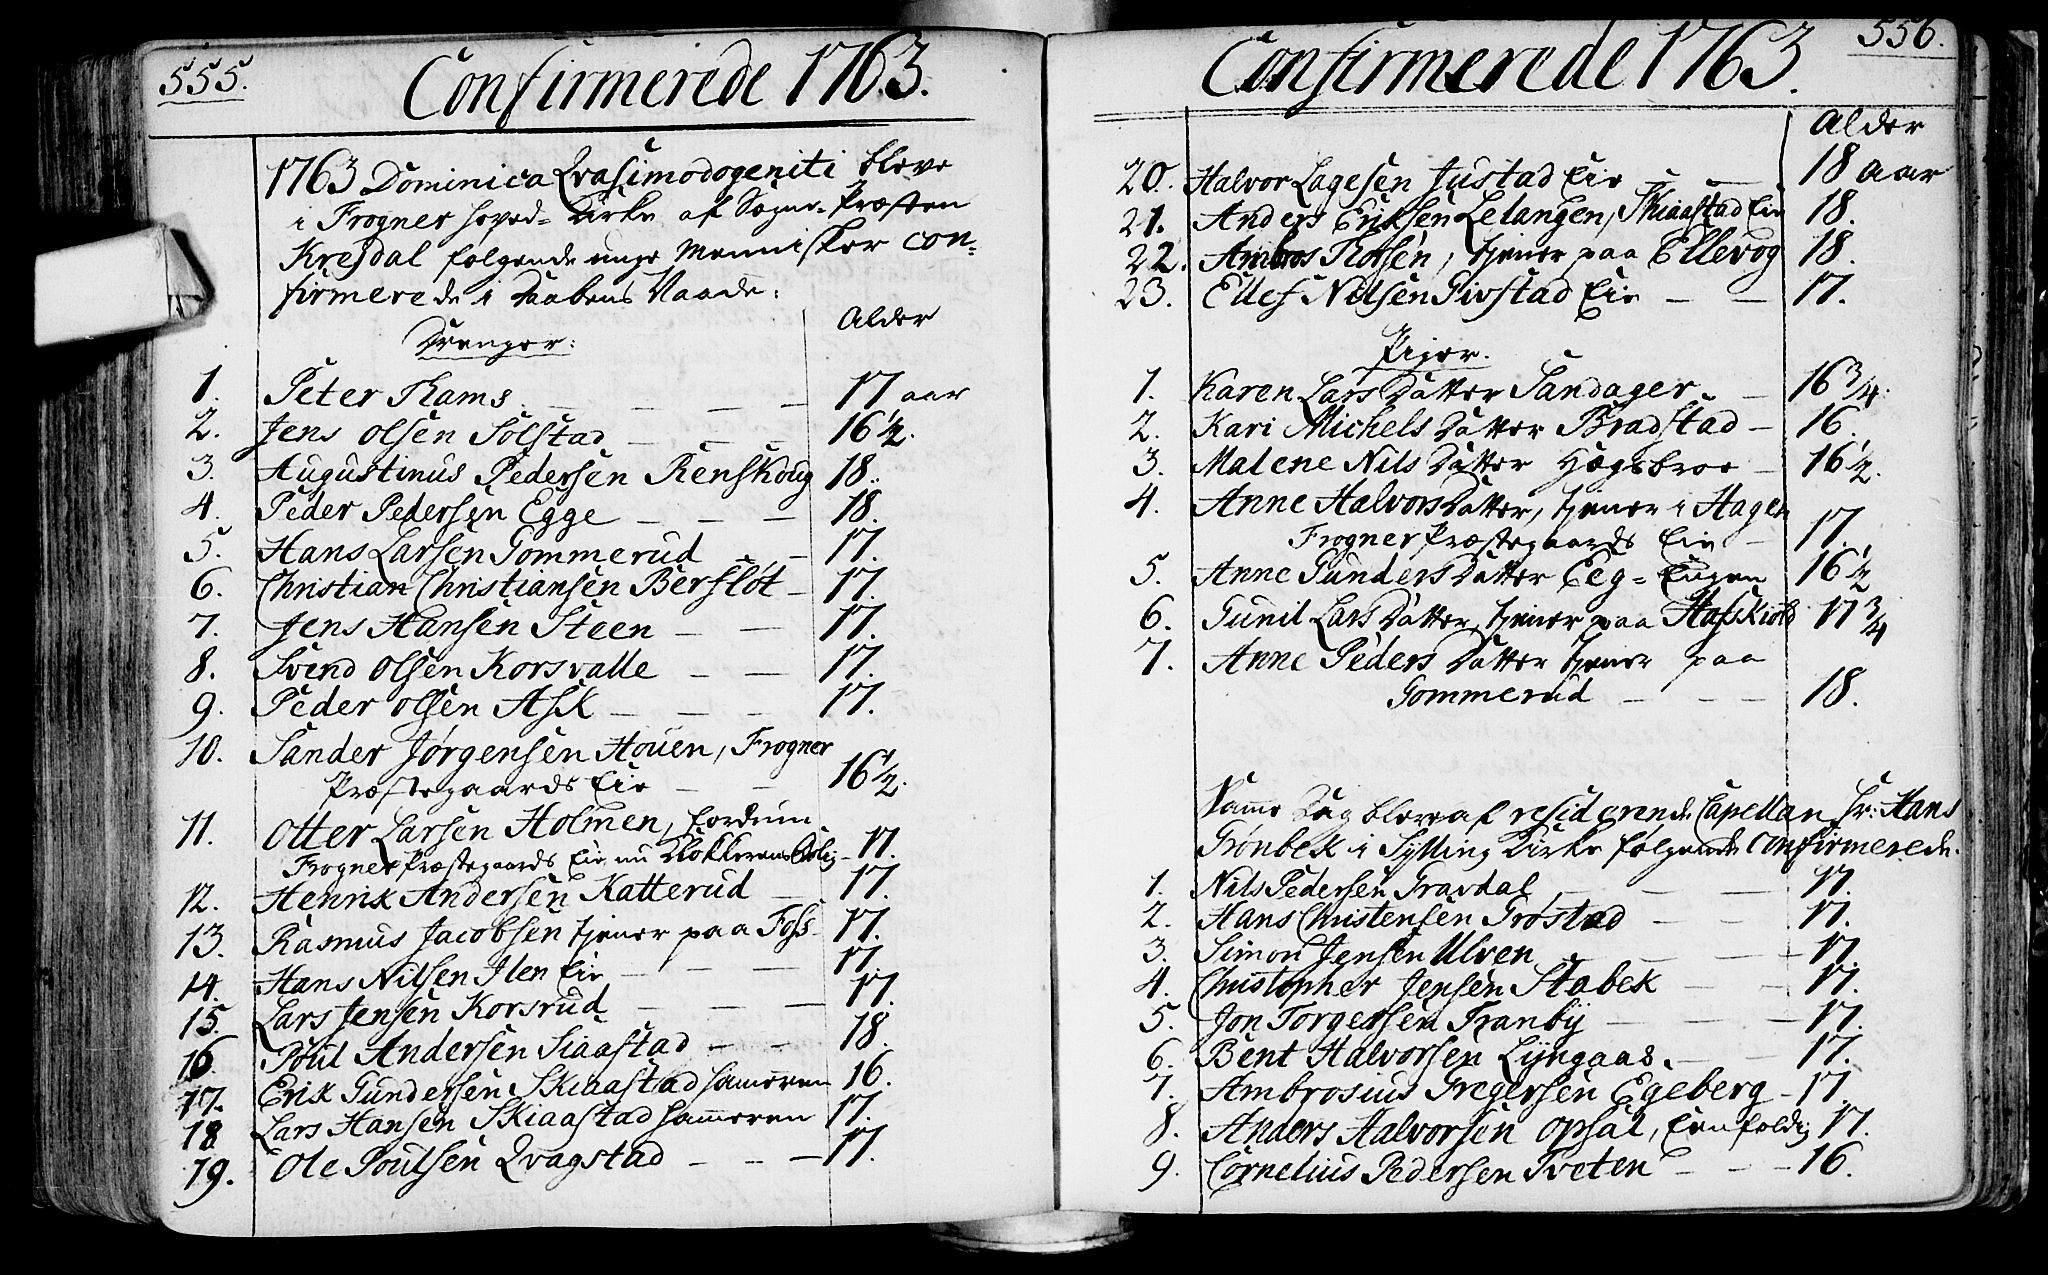 555.
Confirmerede 1763.
1763 Dominica Qvasimodogeniti bleve
i Frogner Hoved-Kirke af Sogne-Præsten
Kresdal følgende unge Mennisker con-
firmerede i Daabens Naade:
Alder
Drenger:
1. Peter Thams. — — — — 17 aar
2. Jens Olsen Solstad — — — 16 1/2.
3. Augustinus Pedersen Renskoug 18.
4. Peder Pedersen Egge — — — 18.
5. Hans Larsen Gommerud — — 17.
6. Christian Christiansen Bersløt — 17.
7. Jens Hansen Steen — — 17.
8. Svend Olsen Korsvalle — — 17.
9. Peder Olsen Ask — — — 17.
10. Sander Jørgensen Houen, Frogner
Præstegaards Eie — — 16 1/2.
11. Otter Larsen Holmen, fordum
Frogner Præstegaards Eie nu Klokkerens Bolig — 17.
12. Henrik Andersen Katterud — 17.
13. Rasmus Jacobsen tjener paa Foss. 17.
14. Hans Nilsen Ilen Eie — — — 17.
15. Lars Jensen Korsrud — — — 17.
16. Poul Andersen Siaastad — — 18.
17. Erik Gundersen Skiaastad 16.
18 Lars Hansen Skiaastad 17.
19. Ole Poulsen Qvagstad — — — 17.
556.
Confirmerede 1763.
Alder
20. Halvor Lagesen Justad Eie — — 18 aar
21. Anders Eriksen Lelangen, Skiaastad Eie 18.
22. Ambros Rolsen, tjener paa Ellevog 18.
23. Ellef Nilsen Givstad Eie — — 17.
Piger.
1. Karen Lars Datter Sandager — 16 3/4.
2. Kari Michels Datter Bradstad — 16.
3. Malene Nils Datter Hægsbroe — 16 1/2.
4. Anne Halvors Datter, tjener i Hagen
Frogner Præstegaards Eie — 17.
5. Anne Gunders Datter Eeg-Eugen 16 1/2
6. Gunil Lars Datter, tjener paa Hafskiold 17 3/4
7. Anne Peders Datter tjener paa
Gommerud — — — 18.
Samme Dag bleve af residerende Capellan Hr: Hans
Grönbek i Sylling Kirke følgende confirmerede.
1. Nils Pedersen Gravdal — — — 17.
2. Hans Christensen Grøstad — — 17.
3. Simon Jensen Ulven — — — — 17.
4. Christopher Jensen Stabek — — 17.
5. Jon Torgersen Tranby — — — 17.
6. Bent Halvorsen Lyngaas. — — 17.
7. Ambrosius Gregersen Egeberg — 17.
8. Anders Halvorsen Opsal, Eenfoldig 17.
9. Cornelius Pedersen Tveten — — — 16.